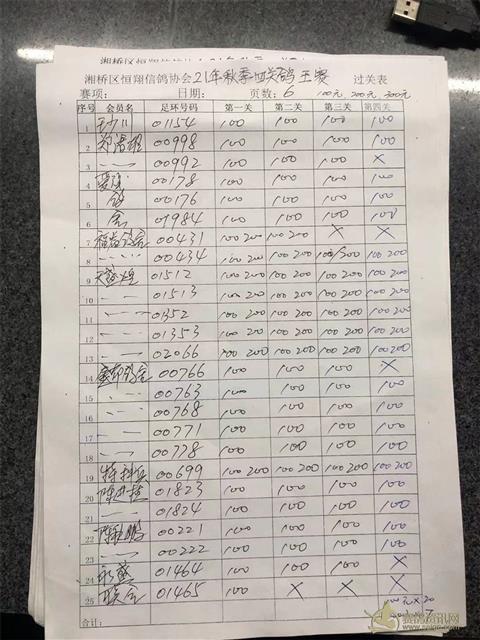 湘桥区恒翔信鸽协会21年秋季四关鸽王赛 过关表
赛项: 日期: 页数: 6 100元, 200元, 300元
序号 会员名 足环号码 第一关 第二关 第三关 第四关
1 01154 100 100 100 100
2 00998 100 100 100 100
3 00992 100 100 100 ×
4 00178 100 100 100 100
5 00176 100 100 100 100
6 01984 100 100 100 100
7 00431 100 200 100 200 × ×
8 00434 100 200 100 200 100/200 100 200
9 01512 100 200 100 200 100 200 100 200
10 01513 100 200 100 200 100 200 100 200
11 01352 100 200 100 200 100 200 100 200
12 01353 100 200 100 200 100 200 100 200
13 02066 100 200 100 200 100 200 100 200
14 00766 100 100 100 ×
15 00763 100 100 100 100
16 00768 100 100 100 100
17 00771 100 100 100 100
18 00778 100 100 100 100
19 特种兵 00699 100 200 100 200 100 200 100 200
20 01823 100 100 100 100
21 01824 100 100 100 100
22 00221 100 100 100 100
23 00222 100 100 100 100
24 01464 100 100 100 ×
25 联合 01465 100 × × ×
合计: 100元×20